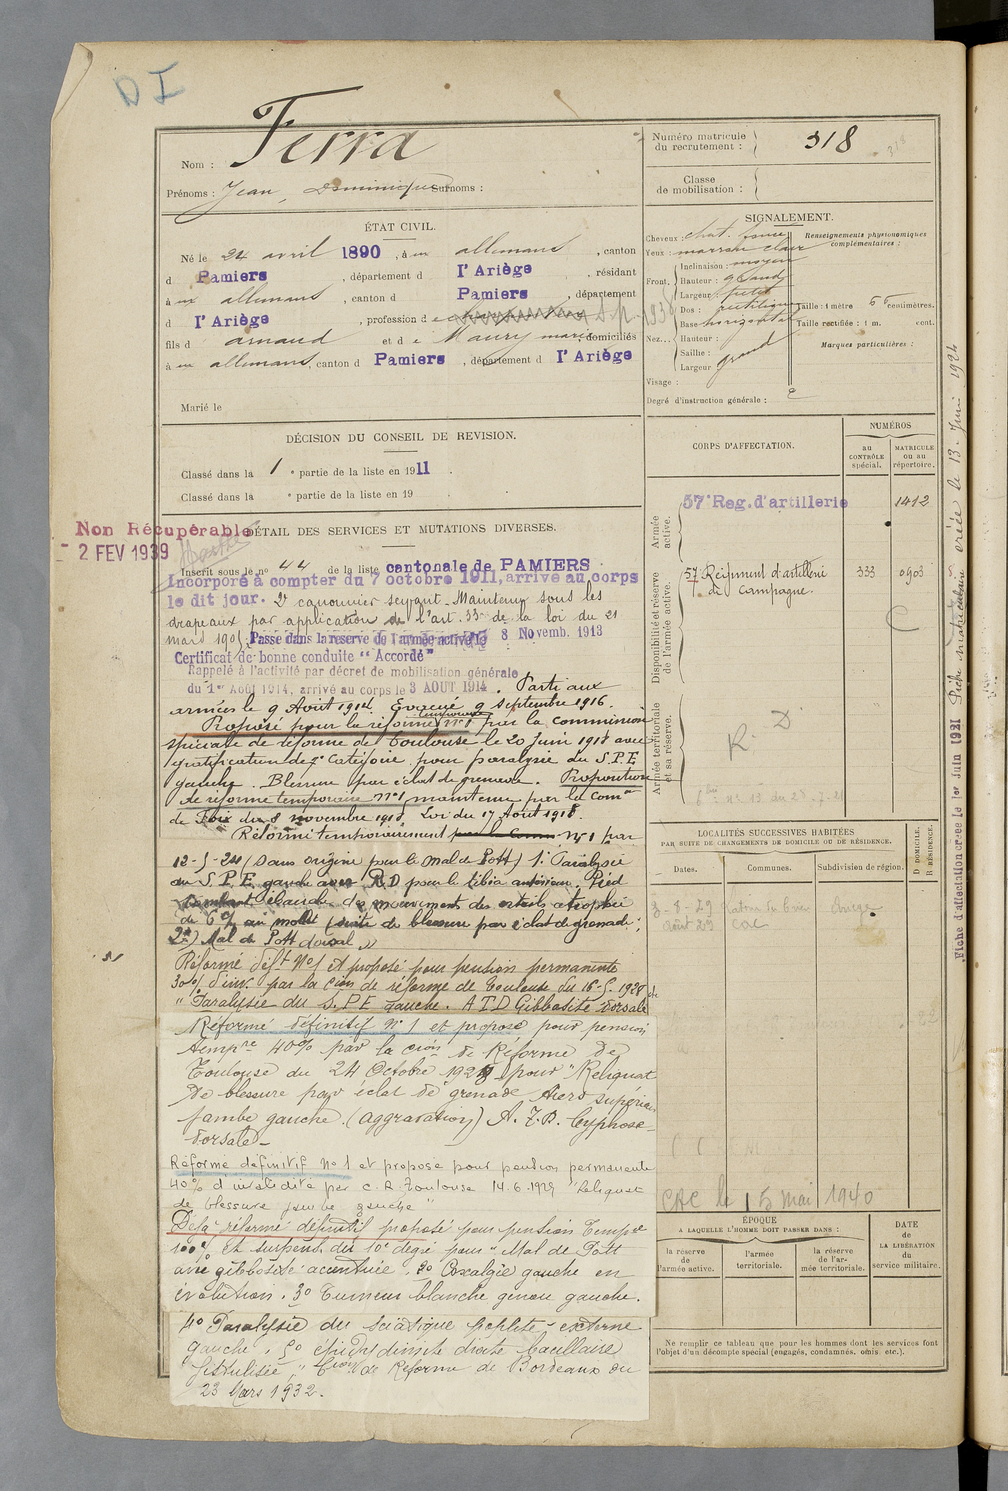 D I
Nom : Ferra
Prénoms : Jean, Dominique Surnoms :
Numéro matricule
du recrutement : 318
218
Classe
de mobilisation :
ÉTAT CIVIL.
Né le 24 avril 1890, à allemans, canton
d Pamiers, département d l'Ariège, résidant
à allemans, canton d Pamiers, département
d l'Ariège, profession de
fils d arnaud et de Maury marie domiciliés
à allemans, canton d Pamiers, département d l'Ariège
Marié le
SIGNALEMENT.
Cheveux : chat. foncé
Yeux : marron clair
Front. Inclinaison : moyen
Hauteur : grand
Largeur : petit
Nez. Dos : rectiligne
Base horizontal
Hauteur :
Saillie :
Largeur grand
Visage :
Degré d'instruction générale : 2
Renseignements physionomiques
complémentaires :
Taille : 1 mètre 65 centimètres.
Taille rectifiée : 1 m. cent.
Marques particulières :
DÉCISION DU CONSEIL DE REVISION.
Classé dans la 1e partie de la liste en 1911.
Classé dans la e partie de la liste en 19
Non Récupérable
- 2 FEV 1939
DÉTAIL DES SERVICES ET MUTATIONS DIVERSES.
Inscrit sous le no 44 de la liste cantonale de PAMIERS
Incorporé à compter du 7 octobre 1911, arrivé au corps
le dit jour. 2e canonnier servant. Maintenu sous les
drapeaux par application de l'art. 33 de la loi du 21
mars 1905. Passé dans la réserve de l'armée active le 8 Novemb. 1913
Certificat de bonne conduite "Accordé"
Rappelé à l'activité par décret de mobilisation générale
du 1er Août 1914, arrivé au corps le 3 AOUT 1914. Parti aux
armées le 9 Août 1914. Evacué 9 septembre 1916.
Proposé pour la réforme temporaire no1 par la commission
spéciale de réforme de Toulouse le 20 juin 1918 avec
gratification de 7e Catégorie pour paralysie du S.P.E
gauche. Blessure par éclat de grenade. Proposition
de réforme temporaire no1 maintenue par la Comon
de Foix du 8 novembre 1918. Loi du 17 Août 1918.
Réformé temporairement par la Comon no 1 par
12-5-24 (Sans origine pour le mal de Pott) 1° Paralysie
du S.P.E gauche avec R.D pour le tibia antérieur. Pied
tombant Ebauche de mouvement des orteils atrophie
de 6% au mollet (suite de blessure par éclat de grenade;
2°) Mal de Pott dorsal"
Réformé déft No1 et proposé pour pension permanente
30% d'inv. par la Cion de réforme de Toulouse du 16-5-1926 de
"Paralysie du S.P.E gauche. A T D Gibbosité dorsale
Réformé définitif No 1 et proposé pour pension
tempre 40% par la cion de Réforme de
Toulouse du 24 Octobre 1928 pour "Reliquat
de blessure par éclat de grenade tiers supérieur
jambe gauche (aggravation) A. T. D. Cyphose
dorsale_
Réformé définitif No 1 et proposé pour pension permanente
40% d'invalidité par C. R. Toulouse 14.6.1929 "Reliquat
de blessure jambe gauche"
Déjà réformé définitif proposé pour pension Tempre
100% et surpens. du 10e degré pour "Mal de Pott
avec gibbosité accentuée. 2° Coxalgie gauche en
évolution. 3° Tumeur blanche genou gauche.
4° Paralysie du sciatique poplité externe
gauche. 5° épididymite droite bacillaire
fistulisée". Cion de Réforme de Bordeaux du
23 Mars 1932.
CORPS D'AFFECTATION.
NUMÉROS
AU
CONTRÔLE
spécial.
MATRICULE
OU AU
répertoire.
Armée
active.
57e Reg. d'artillerie 1412
Disponibilité et réserve
de l'armée active.
57 Régiment d'artillerie 333 0903
de Campagne.
C
Armée territoriale
et sa réserve.
R. D
LOCALITÉS SUCCESSIVES HABITÉES
PAR SUITE DE CHANGEMENTS DE DOMICILE OU DE RÉSIDENCE.
Dates.
Communes.
Subdivision de région.
D DOMICILE.
R RÉSIDENCE.
3-8-29
août 29 CAC
CAC le 15 mai 1940
ÉPOQUE
A LAQUELLE L'HOMME DOIT PASSER DANS :
la réserve
de
l'armée active.
l'armée
territoriale.
la réserve
de l'ar-
mée territoriale.
DATE
de
LA LIBÉRATION
du
service militaire.
Ne remplir ce tableau que pour les hommes dont les services font
l'objet d'un décompte spécial (engagés, condamnés, omis, etc.).
Fiche d'affectation créée le 1er Juin 1921 Fiche matriculaire créée le 13 Juin 1924